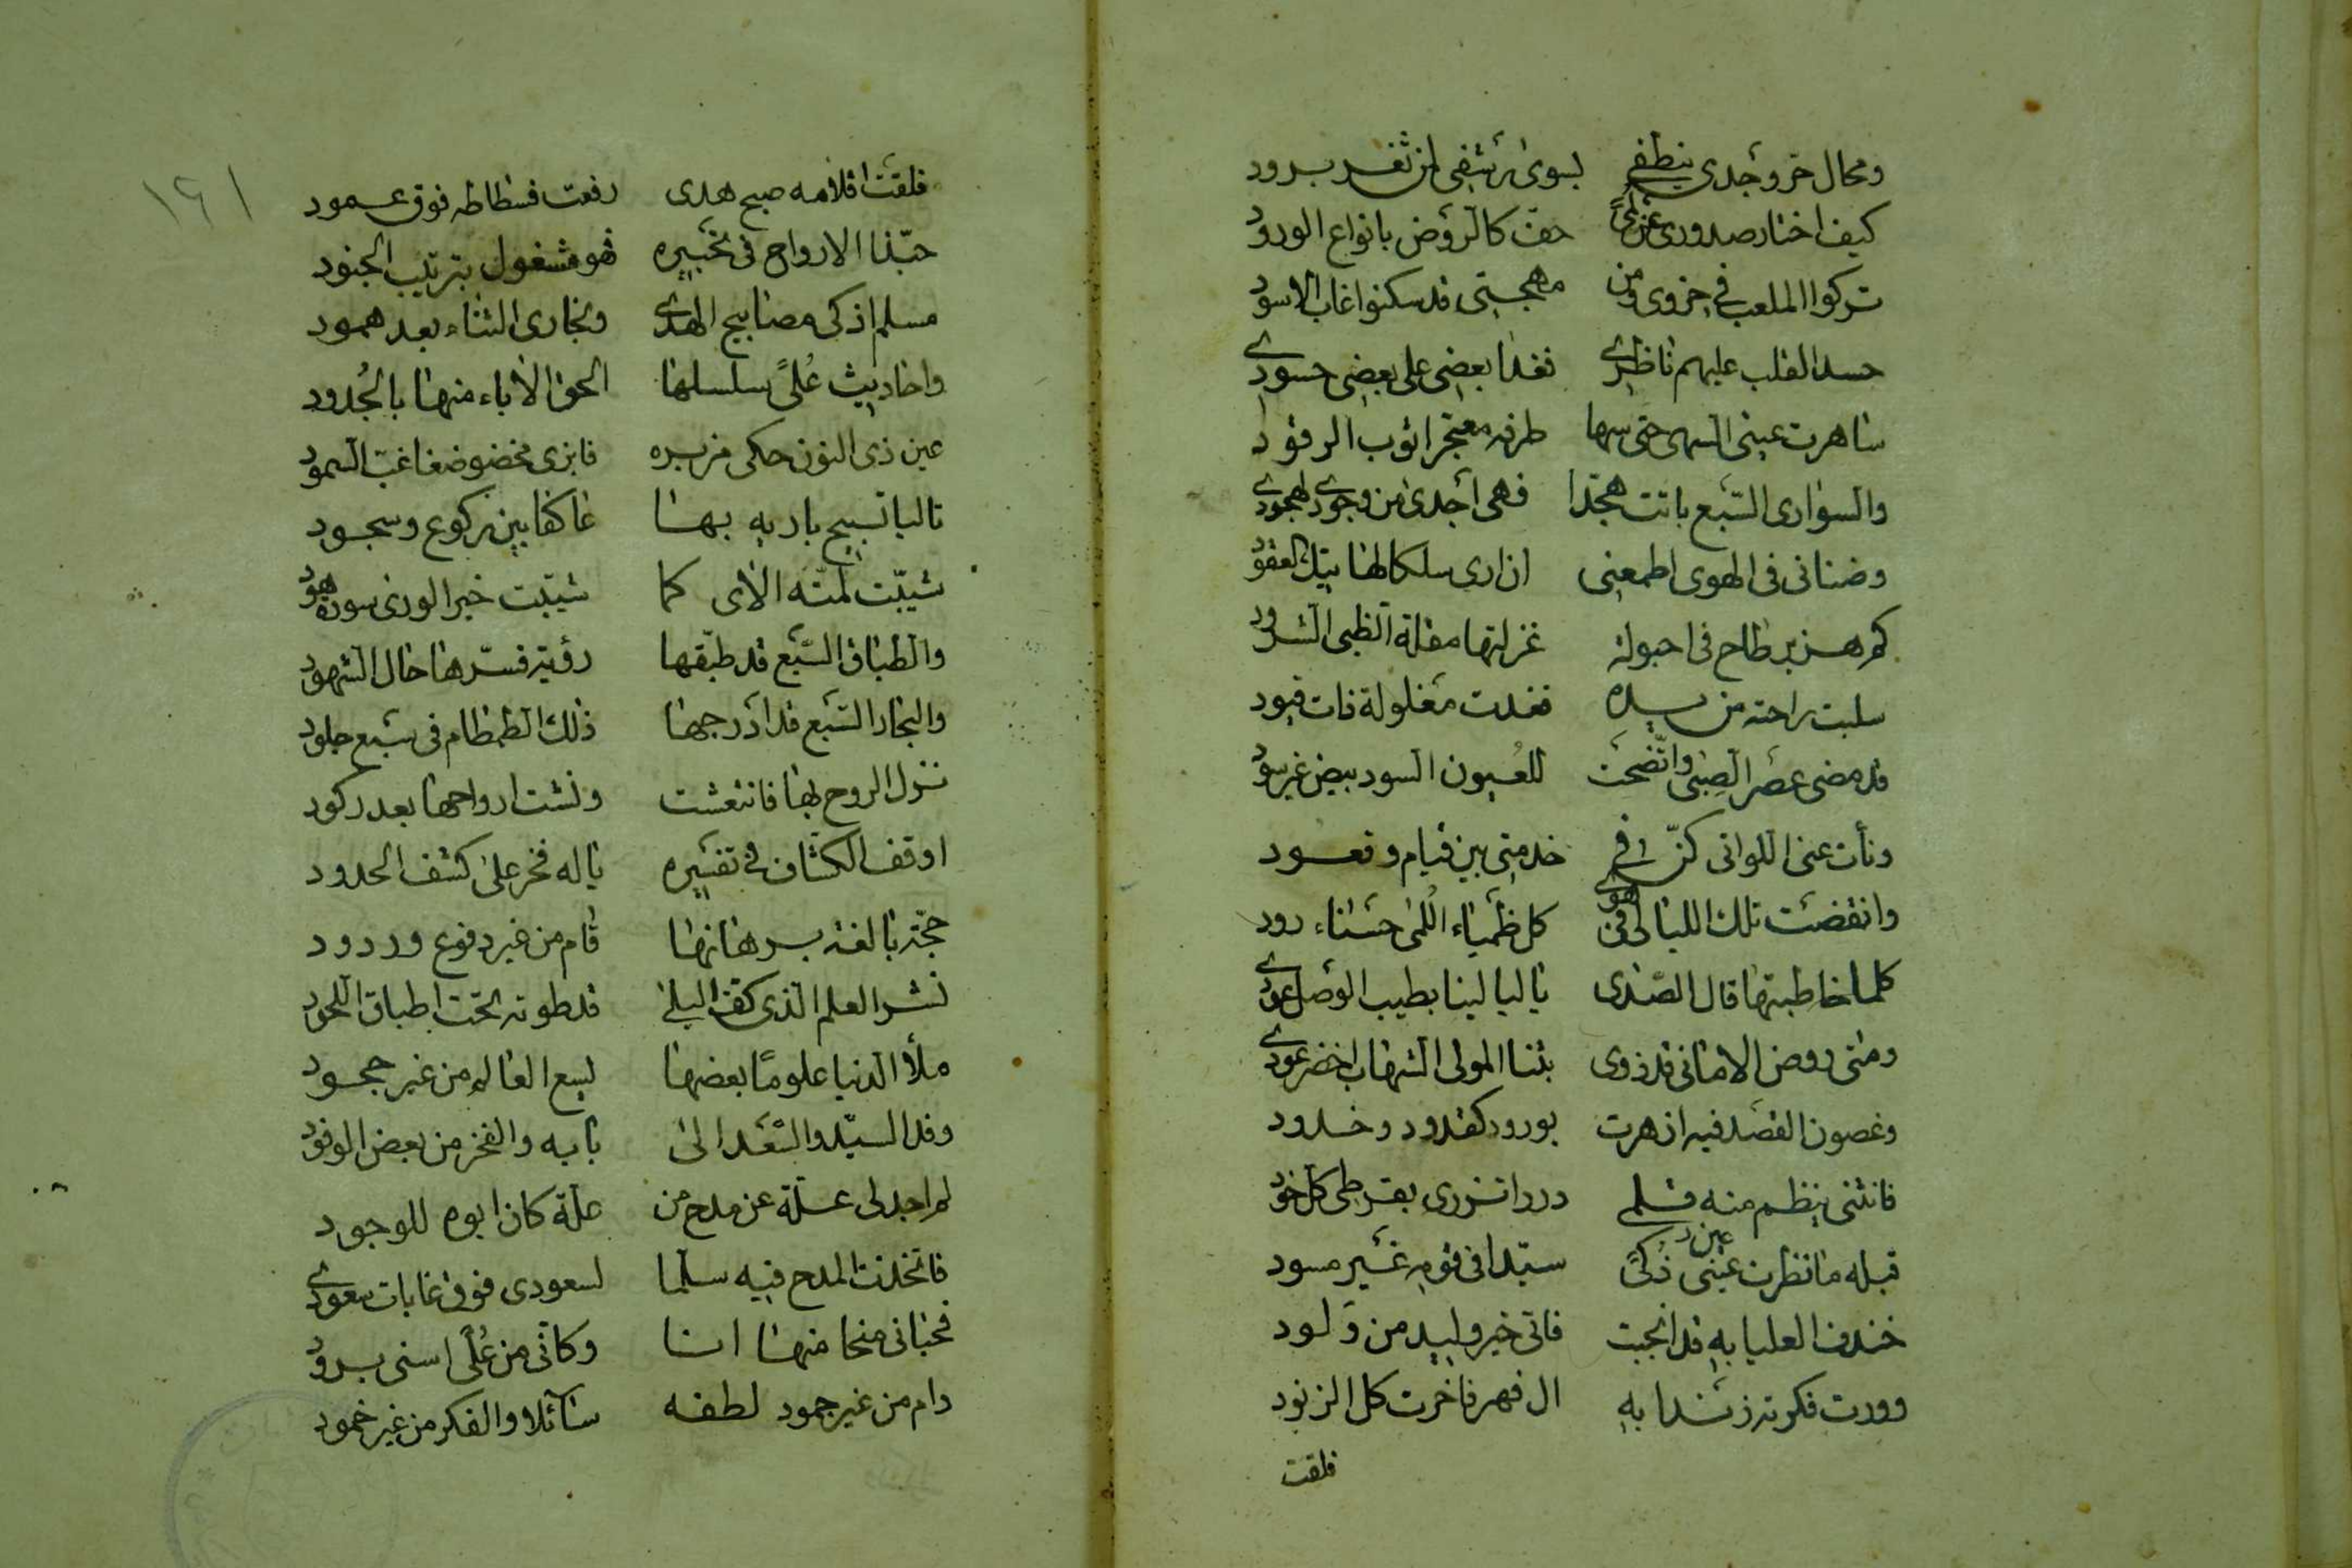 ومحال حر وجدي ينطفي بسوى رشفي لمن ثغر برود
كيف اختار صدوري عن لمى حف كالروض بانواع الورود
تركوا الملعب في حزوى ومن مهجتي قد سكنوا غاب الاسود
حسد القلب عليهم ناظري فغدا بعضي على بعضي حسودي
ساهرت عيني السهى حتى سها طرفه معتجرا ثوب الرقود
والسواري السبع باتت هجدا فهي اجدى من وجودي لهجودي
وضناني في الهوى اطمعني ان ارى سلكا لهاتيك العقود
كم هزبر طاح في احبولة غزلتها مقلة الظبي الشرود
سلبت راحته من يده فغدت مغلولة ذات قيود
قد مضى عصر الصبى واتضحت للعيون السود بيض غير سود
ونأت عني اللواتي كن في خدمتي بين قيام وقعود
وانقضت تلك الليالي في هوى كل ظمياء اللمى حسناء رود
كلما خاطبتها قال الصدى يا ليالينا بطيب الوصل عودي
ومتى روض الاماني قد ذوى بثنا المولى الشهاب اخضر عودي
وغصون القصد فيه ازهرت بورود كقدود وخدود
فانثنى ينظم منه قلمي دررا تزري بقرطي كل خود
قبله ما نظرت عيني ذكى سيدا في قومه غير مسود
خندف العليا به قد انجبت فاتى خير وليد من ولود
وورت فكرته زندا به ال فهر فاخرت كل الزنود
فلقت
١٦١
فلقت اقلامه صبح هدى رفعت فسطاطه فوق عمود
حبذا الارواح في تحبيره فهو مشغول بترتيب الجنود
مسلم اذكى مصابيح الهدى وبخاري الثناء بعد همود
واحاديث علًى سلسلها الحق الآباء منها بالجدود
عين ذي النون حكى مزبره فابزى مخضوضعا غب السمود
تاليا تسبيح باريه بها عاكفا بين ركوع وسجود
شيبت لمته الآي كما شيبت خير الورى سورة هود
والطباق السبع قد طبقها رؤية فسرها حال الشهود
والبحار السبع قد ادرجها ذلك الطمطام في سبع جلود
نزل الروح بها فانتعشت ونشت ارواحها بعد ركود
اوقف الكشاف في تفسيره يا له فخر على كشف الحدود
حجة بالغة برهانها قام من غير دفوع وردود
نشر العلم الذي كف البلى قد طوته تحت اطباق اللحود
ملأ الدنيا علوما بعضها يسع العالم من غير جحود
وفد السيد والسعد الى بابه والفخر من بعض الوفود
لم اجد لي علة عن مدح من علة كان ابوه للوجود
فاتخذت المدح فيه سلما لسعودي فوق غايات سعودي
فحباني منحا منها انا وكأني من علًى اسنى برود
دام من غير جمود لطفه سائلا والفكر من غير خمود